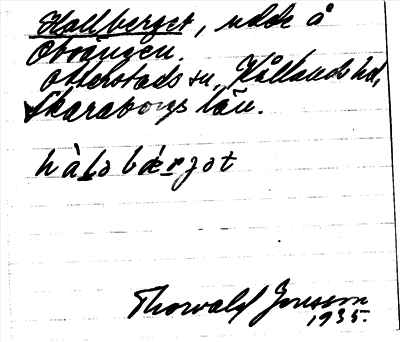 Hallberget, udde å
Obrången.
Otterstads sn, Kållands hd,
Skaraborgs län.
hàlobǽrjot
Thorvald Jonsson
1935.